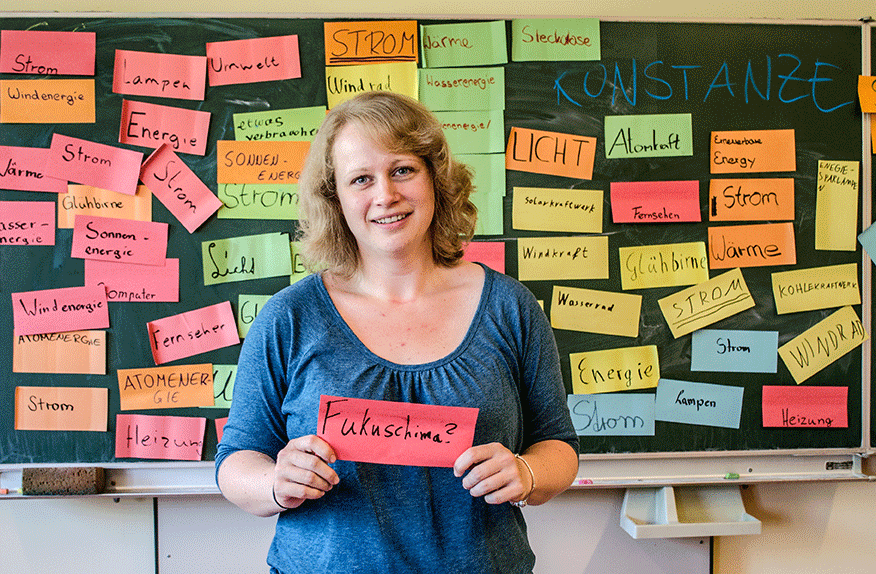 Strom
Lampen
Umwelt
STROM
Wärme
Steckdose
KONSTANZE
Windenergie
Windrad
Wasserenergie
Energie
etwas
verbrauchen
LICHT
Atomkraft
Erneuerbare
Energy
ENERGIE-
SPARLAMPE
Wärme
Strom
Strom
SONNEN-
ENERGIE
Strom
Glühbirne
Solarkraftwerk
Fernsehen
Strom
Sonnen-
energie
Licht
Windkraft
Glühbirne
Wärme
Computer
Windenergie
Wasserrad
STROM
KOHLEKRAFTWERK
Fernseher
ATOMENERGIE
Energie
Strom
WINDRAD
ATOMENERGIE
Strom
Strom
Lampen
Heizung
Heizung
Fukuschima?